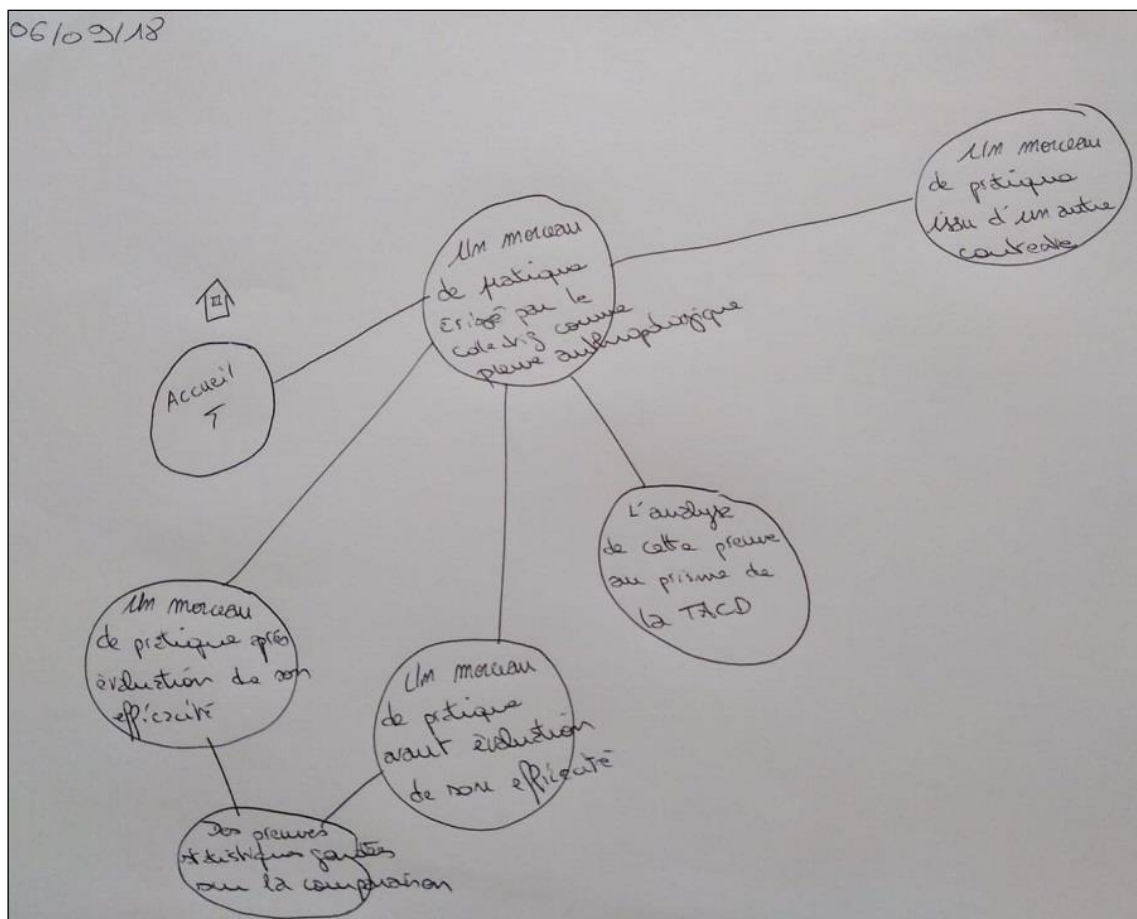 06/09/18
Un morceau
de pratique
issu d'un autre
contexte
Un morceau
de pratique
érigé par le
collectif comme
preuve anthropologique
Accueil
L'analyse
de cette preuve
au prisme de
la TACD
Un morceau
de pratique après
évaluation de son
efficacité
Un morceau
de pratique
avant évaluation
de son efficacité
Des preuves
statistiques fondées
sur la comparaison